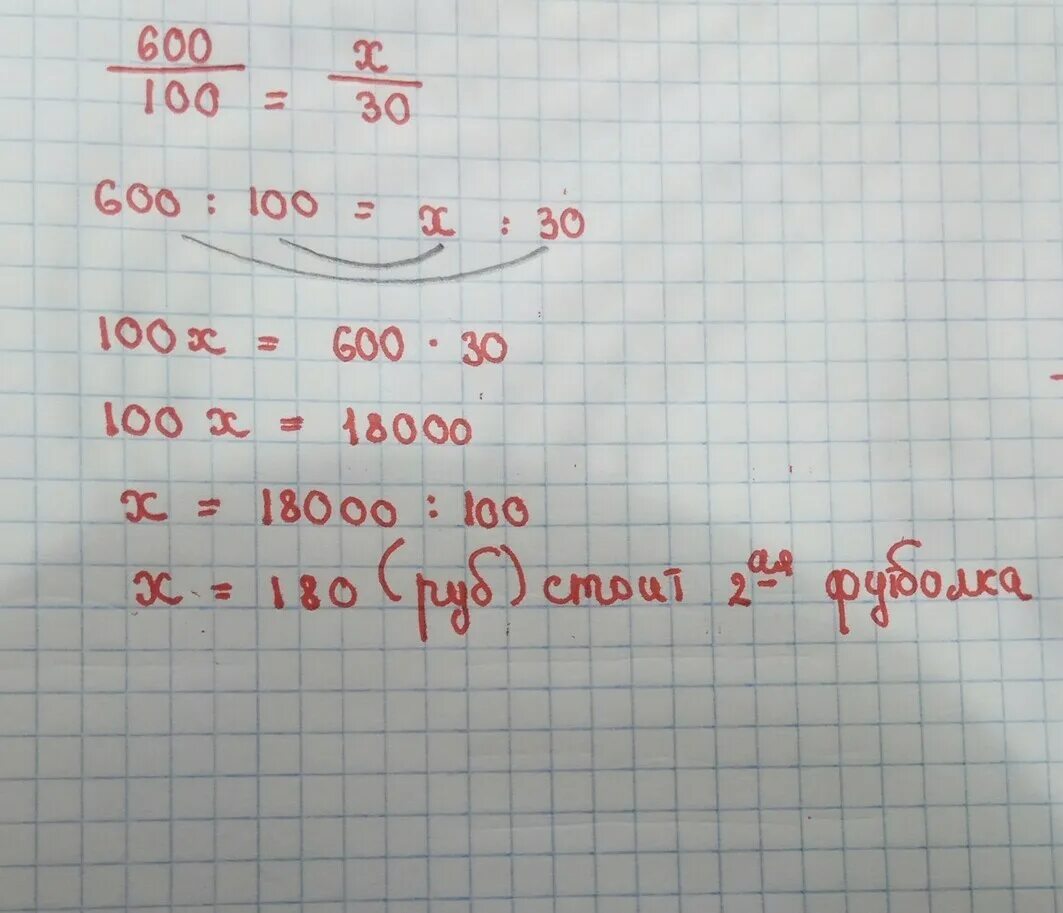 600/100 = x/30
600 : 100 = x : 30
100x = 600 · 30
100x = 18000
x = 18000 : 100
x = 180 (руб) стоит 2ая футболка